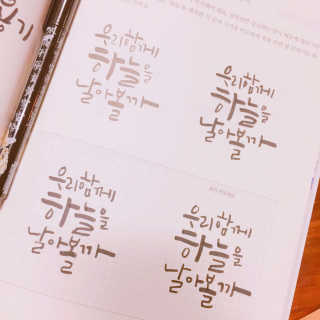 용기
우리함께
하늘을
날아볼까
우리함께
하늘을
날아볼까
우리함께
하늘을
날아볼까
우리함께
하늘을
날아볼까